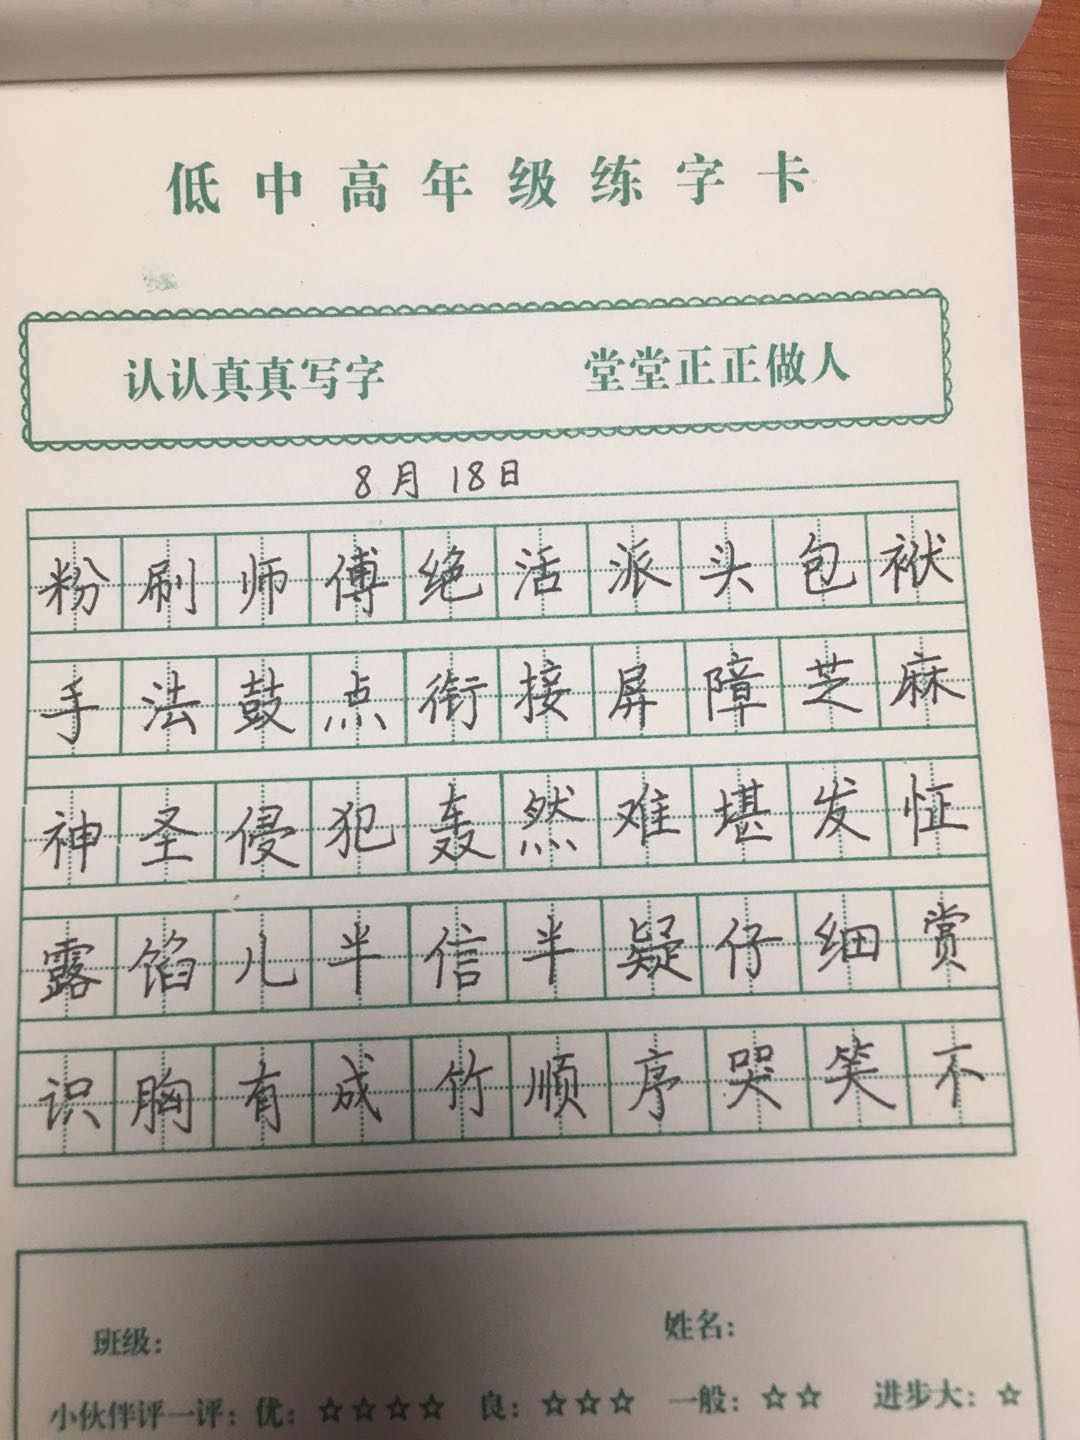 低中高年级练字卡
认认真真写字 堂堂正正做人
8月18日
粉刷师傅绝活派头包袱
手法鼓点衔接屏障芝麻
神圣侵犯轰然难堪发怔
露馅儿半信半疑仔细赏
识胸有成竹顺序哭笑不
班级： 姓名：
小伙伴评一评：优：☆☆☆☆ 良：☆☆☆ 一般：☆☆ 进步大：☆